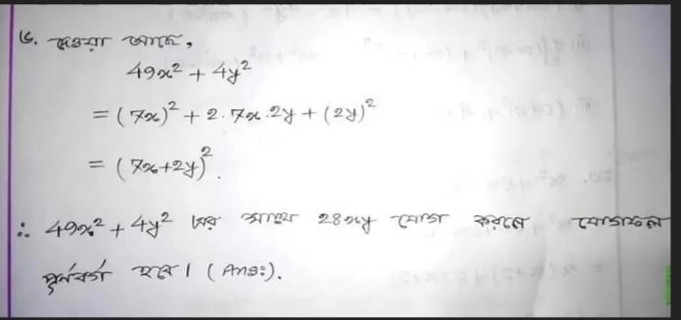 ৬. দেওয়া আছে,
49x² + 4y²
= (7x)² + 2.7x.2y + (2y)²
= (7x+2y)².
∴ 49x² + 4y² এর সাথে 28xy যোগ করলে যোগফল
পূর্নবর্গ হবে। (Ans:).